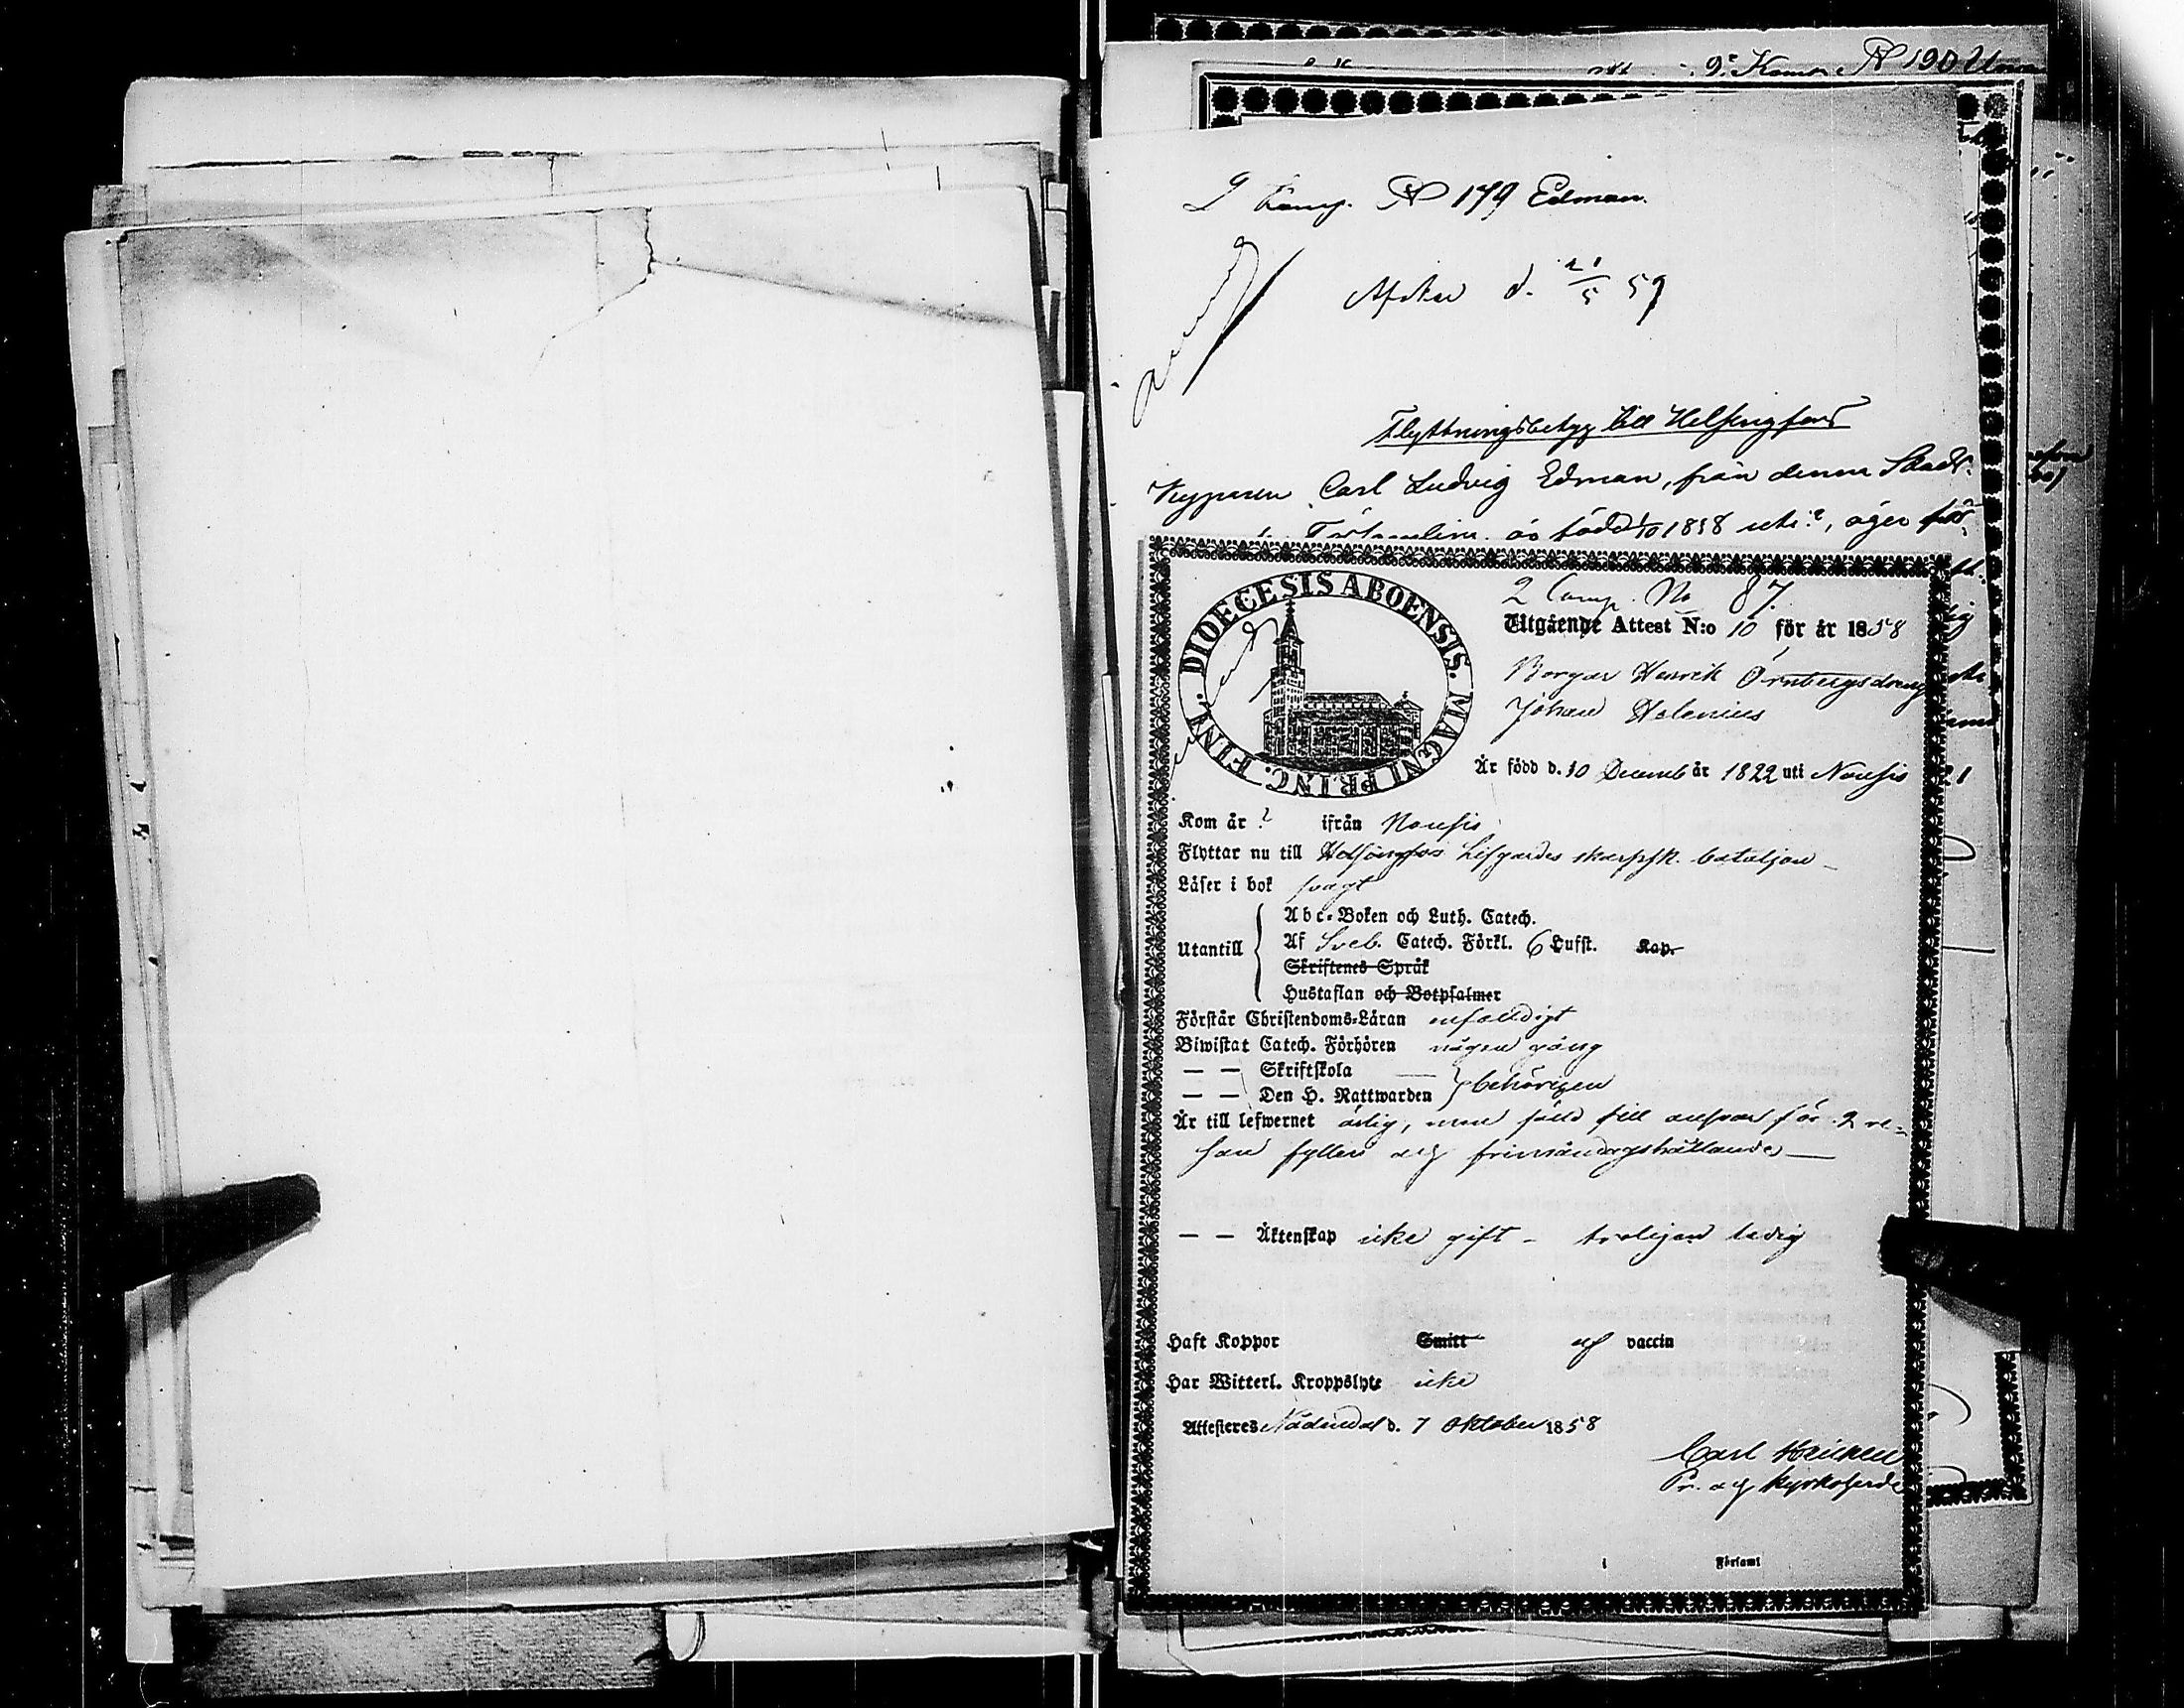 9e Komp. № 190
2 Komp. № 179 Edman.
d. 21/5 59
Flyttningsbetyg till Helsingfors
Kyparen Carl Ludvig Edman, från denna Stads
är född 1/10 1838 uti ?, äger
2 Comp. No 87.
DIOECESIS ABOENSIS. MAGNI PRINC. FINL.
Utgående Attest N:o 10 för år 1858
Borgar Henrik Örnbergs dreng
Johan Helenius
Är född d. 10 Decemb år 1822 uti Nousis
Kom år ? ifrån Nousis
Flyttar nu till Helsingfors Lifgardes skarpsk. bataljon
Läser i bok svagt
Utantill
Abc-Boken och Luth. Catech.
Af Sveb. Catech. Förkl. 6 Hufst. Kap.
Skriftenes Språk
Hustaflan och Botpsalmer
Förstår Christendoms-Läran enfaldigt
Biwistat Catech. Förhören någon gång
— — Skriftskola
— — Den H. Nattwarden behörigen
Är till lefwernet ärlig, men fälld till answar för 2 re-
san fylleri och frimåndagshållande
— — Äktenskap icke gift - troligen ledig
Haft Koppor Smitt af vaccin
Har Witterl. Kroppslyte icke
Attesteres Nådendal d. 7 Oktober 1858
Carl
Pr. och kyrkoherde
Församl